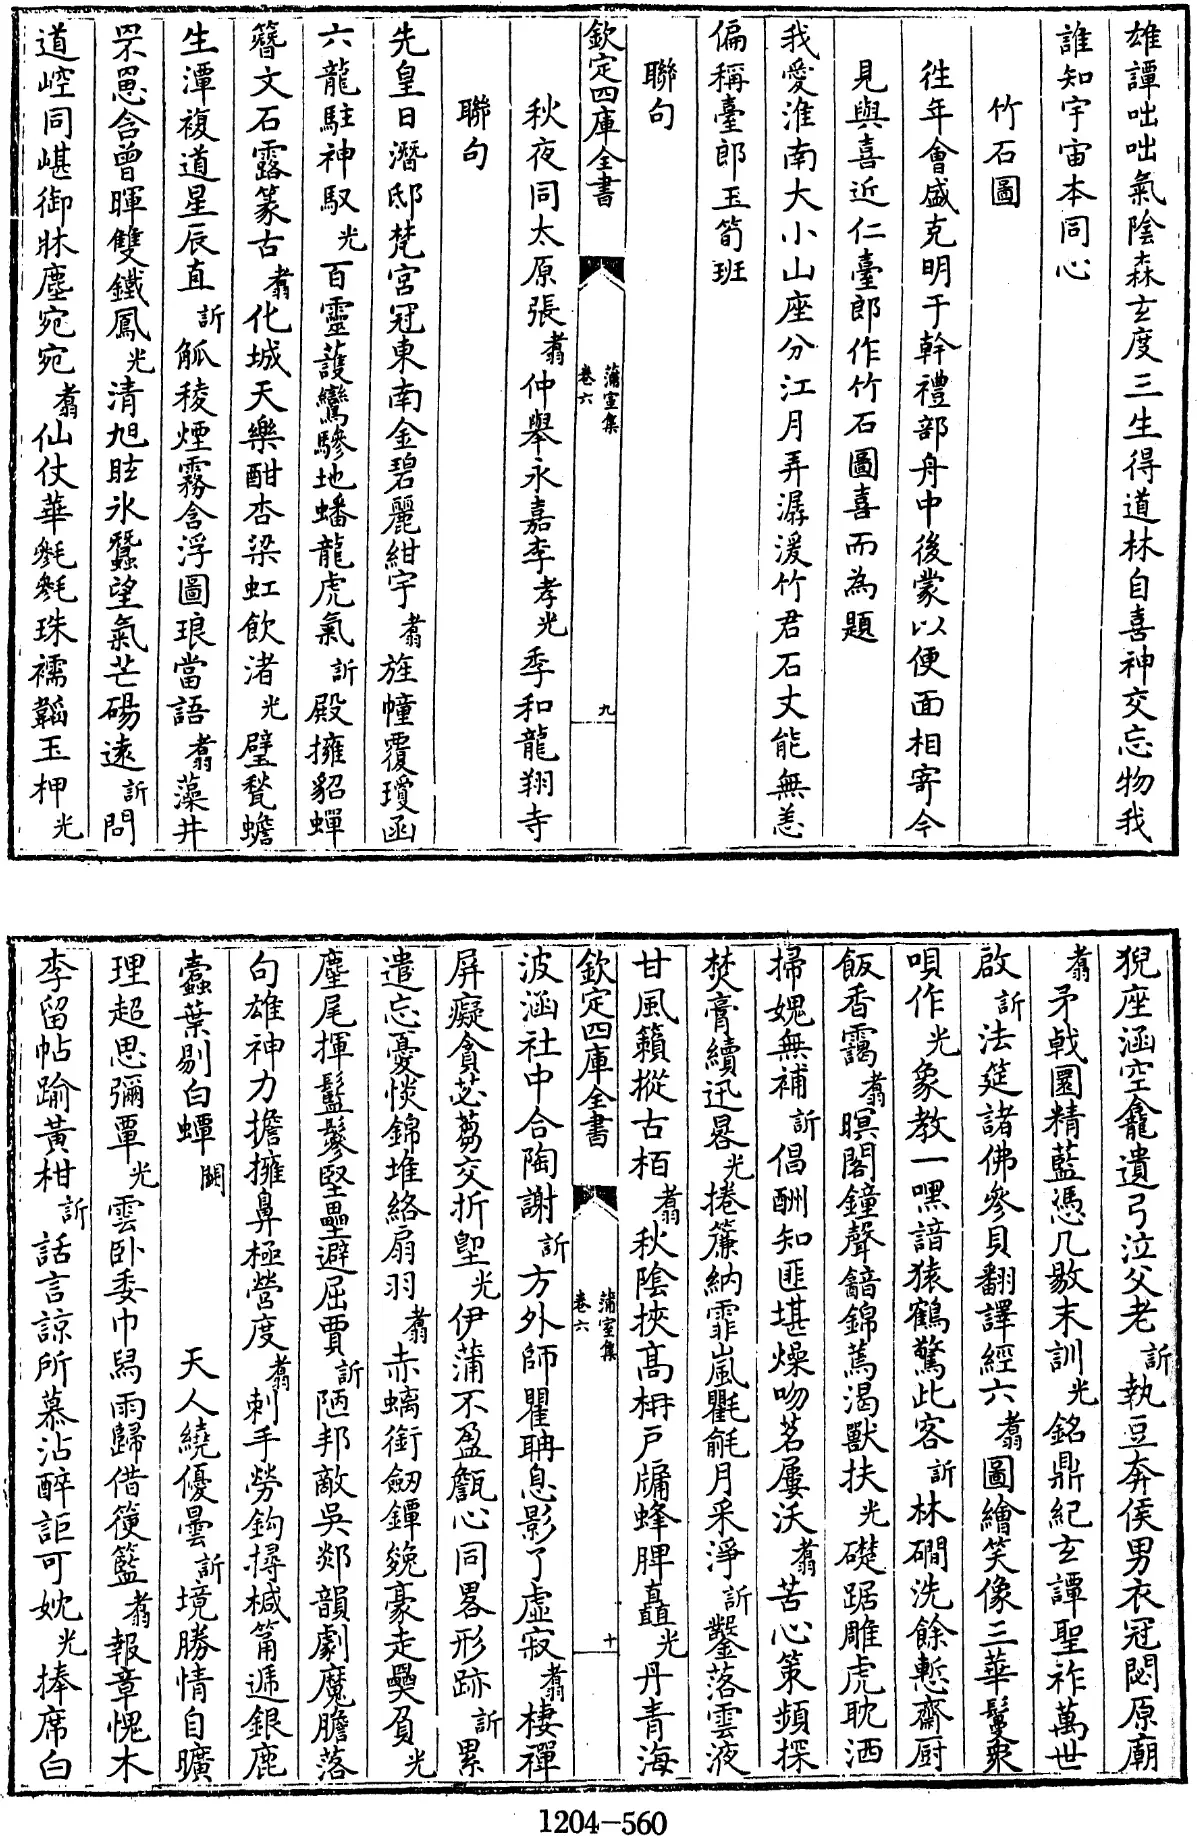 雄譚咄咄氣陰森玄度三生得道林自喜神交忘物我
誰知宇宙本同心
竹石圖
往年會盛克明于幹禮部舟中後蒙以便面相寄今
見與喜近仁臺郎作竹石圖喜而為題
我愛淮南大小山座分江月弄潺湲竹君石丈能無恙
偏稱臺郎玉筍班
聯句
欽定四庫全書
蒲室集
卷六
九
秋夜同太原張翥仲舉永嘉李孝光季和龍翔寺
聯句
先皇日潛邸梵宮冠東南金碧麗紺宇翥旌幢覆瓊函
六龍駐神馭光百靈護鸞驂地蟠龍虎氣訢殿擁貂蟬
簪文石露篆古翥化城天樂酣杏梁虹飲渚光璧甃蟾
生潭複道星辰直訢觚稜煙霧含浮圖琅當語翥藻井
罘罳含曾暉雙鐵鳳光清旭眩氷蠶望氣芒碭遠訢問
道崆同嵁御牀塵宛宛翥仙仗華毿毿珠襦韜玉柙光
猊座涵空龕遺弓泣父老訢執豆奔侯男衣冠閟原廟
翥矛戟圜精藍憑几敭末訓光銘鼎紀玄譚聖祚萬世
啟訢法筵諸佛參貝翻譯經六翥圖繪笑像三華鬘衆
唄作光象教一嘿諳猿鶴驚此客訢林磵洗餘慙齋厨
飯香靄翥暝閣鐘聲韽錦蔫渴獸扶光礎踞雕虎耽洒
掃媿無補訢倡酬知匪堪燥吻茗屢沃翥苦心策頻探
焚膏續迅晷光捲簾納霏嵐氍毹月采淨訢鑿落雲液
甘風籟摐古栢翥秋陰挾高枏戸牖蜂脾矗光丹青海
欽定四庫全書
蒲室集
卷六
十
波涵社中合陶謝訢方外師瞿聃息影了虛寂翥棲禪
屏癡貪苾蒭交折𡎺光伊蒲不盈甔心同畧形跡訢累
遣忘憂惔錦堆絡扇羽翥赤螭銜劒鐔兔豪走奰屓光
麈尾揮鬖鬖堅壘避屈賈訢陋邦敵吳郯韻劇魔膽落
句雄神力擔擁鼻極營度翥刺手勞鈎撏椷筩遞銀鹿
蠧葉剔白蟫闕天人繞優曇訢境勝情自曠
理超思彌覃光雲卧委巾舄雨歸借筊籃翥報章愧木
李留帖踰黃柑訢話言諒所慕沾醉詎可妉光捧席白
1204-560